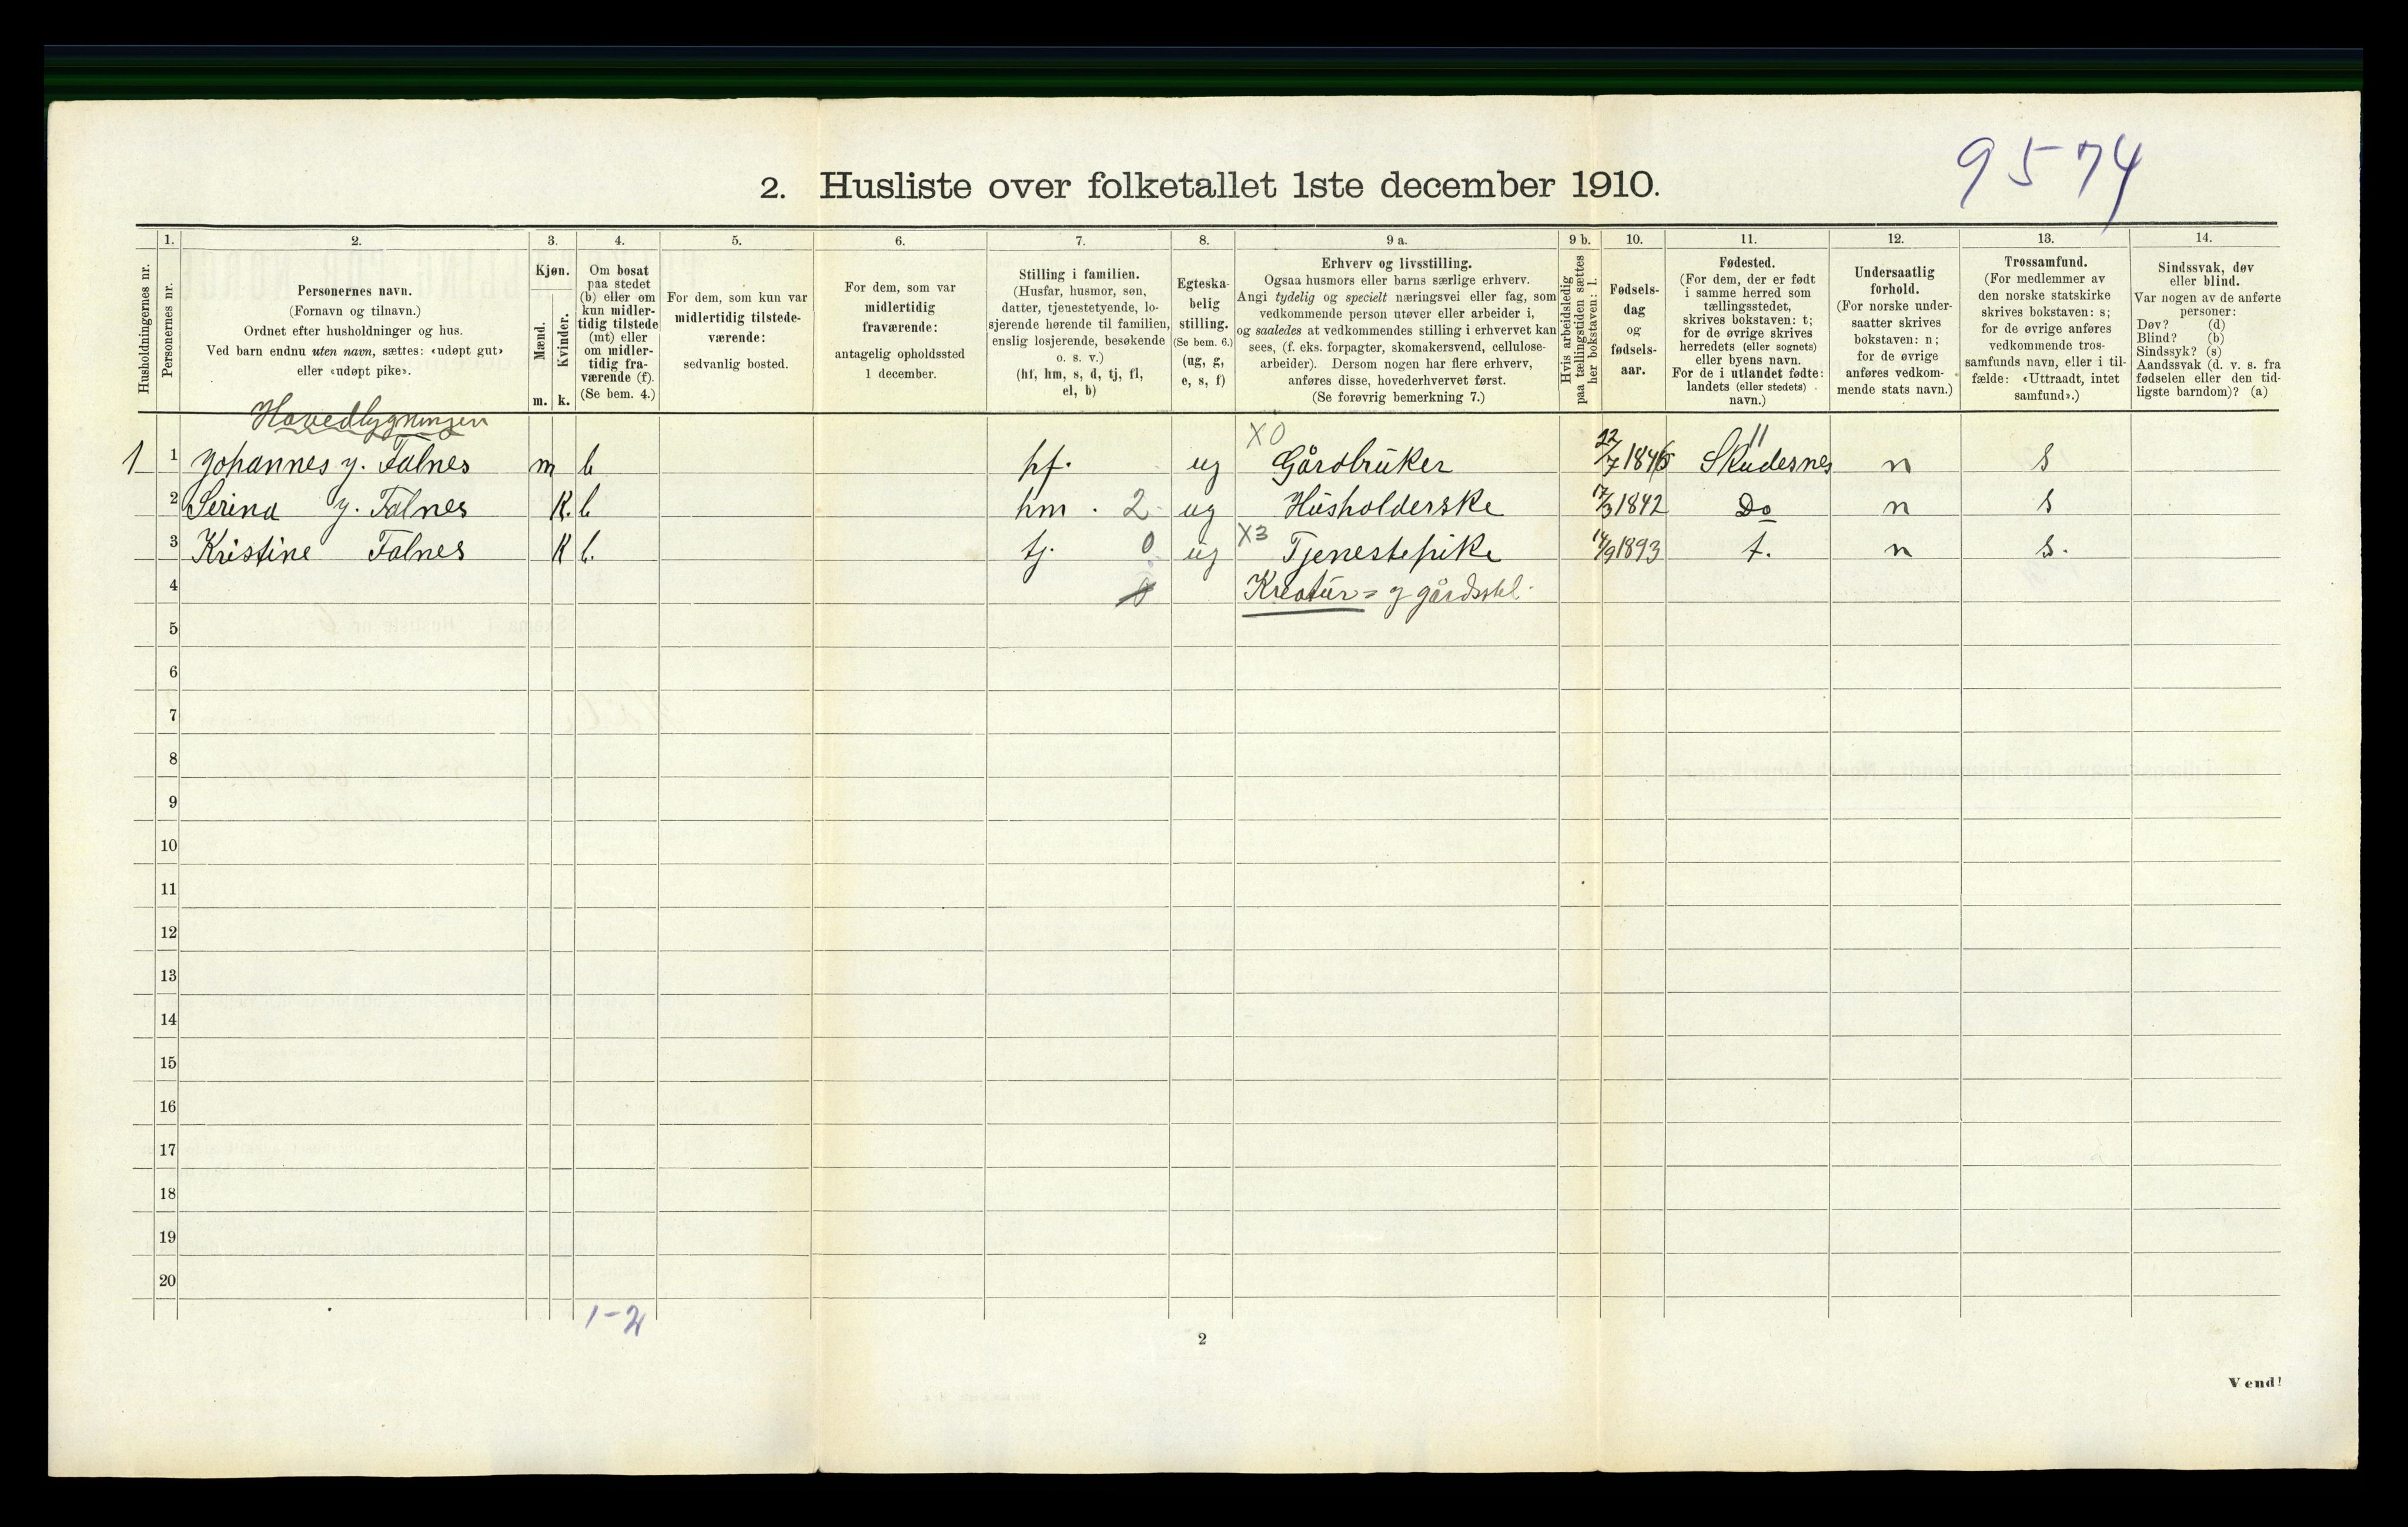 9574
2. Husliste over folketallet 1ste december 1910.
Husholdningernes nr.
1.
Personernes nr.
2.
Personernes navn.
(Fornavn og tilnavn.)
Ordnet efter husholdninger og hus.
Ved barn endnu uten navn, sættes: «udøpt gut»
eller «udøpt pike».
3.
Kjøn.
Mænd.
Kvinder.
m. k.
4.
Om bosat
paa stedet
(b) eller om
kun midler-
tidig tilstede
(mt) eller
om midler-
tidig fra-
værende (f).
(Se bem. 4.)
5.
For dem, som kun var
midlertidig tilstede-
værende:
sedvanlig bosted.
6.
For dem, som var
midlertidig
fraværende:
antagelig opholdssted
1 december.
7.
Stilling i familien.
(Husfar, husmor, søn,
datter, tjenestetyende, lo-
sjerende hørende til familien,
enslig losjerende, besøkende
o. s. v.)
(hf, hm, s, d, tj, fl,
el, b)
8.
Egteska-
belig
stilling.
(Se bem. 6.)
(ug, g,
e, s, f)
9 a.
Erhverv og livsstilling.
Ogsaa husmors eller barns særlige erhverv.
Angi tydelig og specielt næringsvei eller fag, som
vedkommende person utøver eller arbeider i,
og saaledes at vedkommendes stilling i erhvervet kan
sees, (f. eks. forpagter, skomakersvend, cellulose-
arbeider). Dersom nogen har flere erhverv,
anføres disse, hovederhvervet først.
(Se forøvrig bemerkning 7.)
9 b.
Hvis arbeidsledig
paa tællingstiden sættes
her bokstaven: l.
10.
Fødsels-
dag
og
fødsels-
aar.
11.
Fødested.
(For dem, der er født
i samme herred som
tællingsstedet,
skrives bokstaven: t;
for de øvrige skrives
herredets (eller sognets)
eller byens navn.
For de i utlandet fødte:
landets (eller stedets)
navn.)
12.
Undersaatlig
forhold.
(For norske under-
saatter skrives
bokstaven: n;
for de øvrige
anføres vedkom-
mende stats navn.)
13.
Trossamfund.
(For medlemmer av
den norske statskirke
skrives bokstaven: s;
for de øvrige anføres
vedkommende tros-
samfunds navn, eller i til-
fælde: «Uttraadt, intet
samfund».)
14.
Sindssvak, døv
eller blind.
Var nogen av de anførte
personer:
Døv? (d)
Blind? (b)
Sindssyk? (s)
Aandssvak (d. v. s. fra
fødselen eller den tid-
ligste barndom)? (a)
Hovedbygningen
X0
1 1 Johannes J. Falnes m b hf. ug Gårdbruker 22/7 Skudesnes n s
2 Serina J. Falnes K. b hm. 2 ug Husholderske 17/3 1842 Do n s
3 Kristine Falnes K b. tj. 0 ug X3 Tjenestepike 14/9 1893 t. n s.
4 Kreatur= g gårdsstel.
5
6
7
8
9
10
11
12
13
14
15
16
17
18
19
20
1-2
2
Vend!